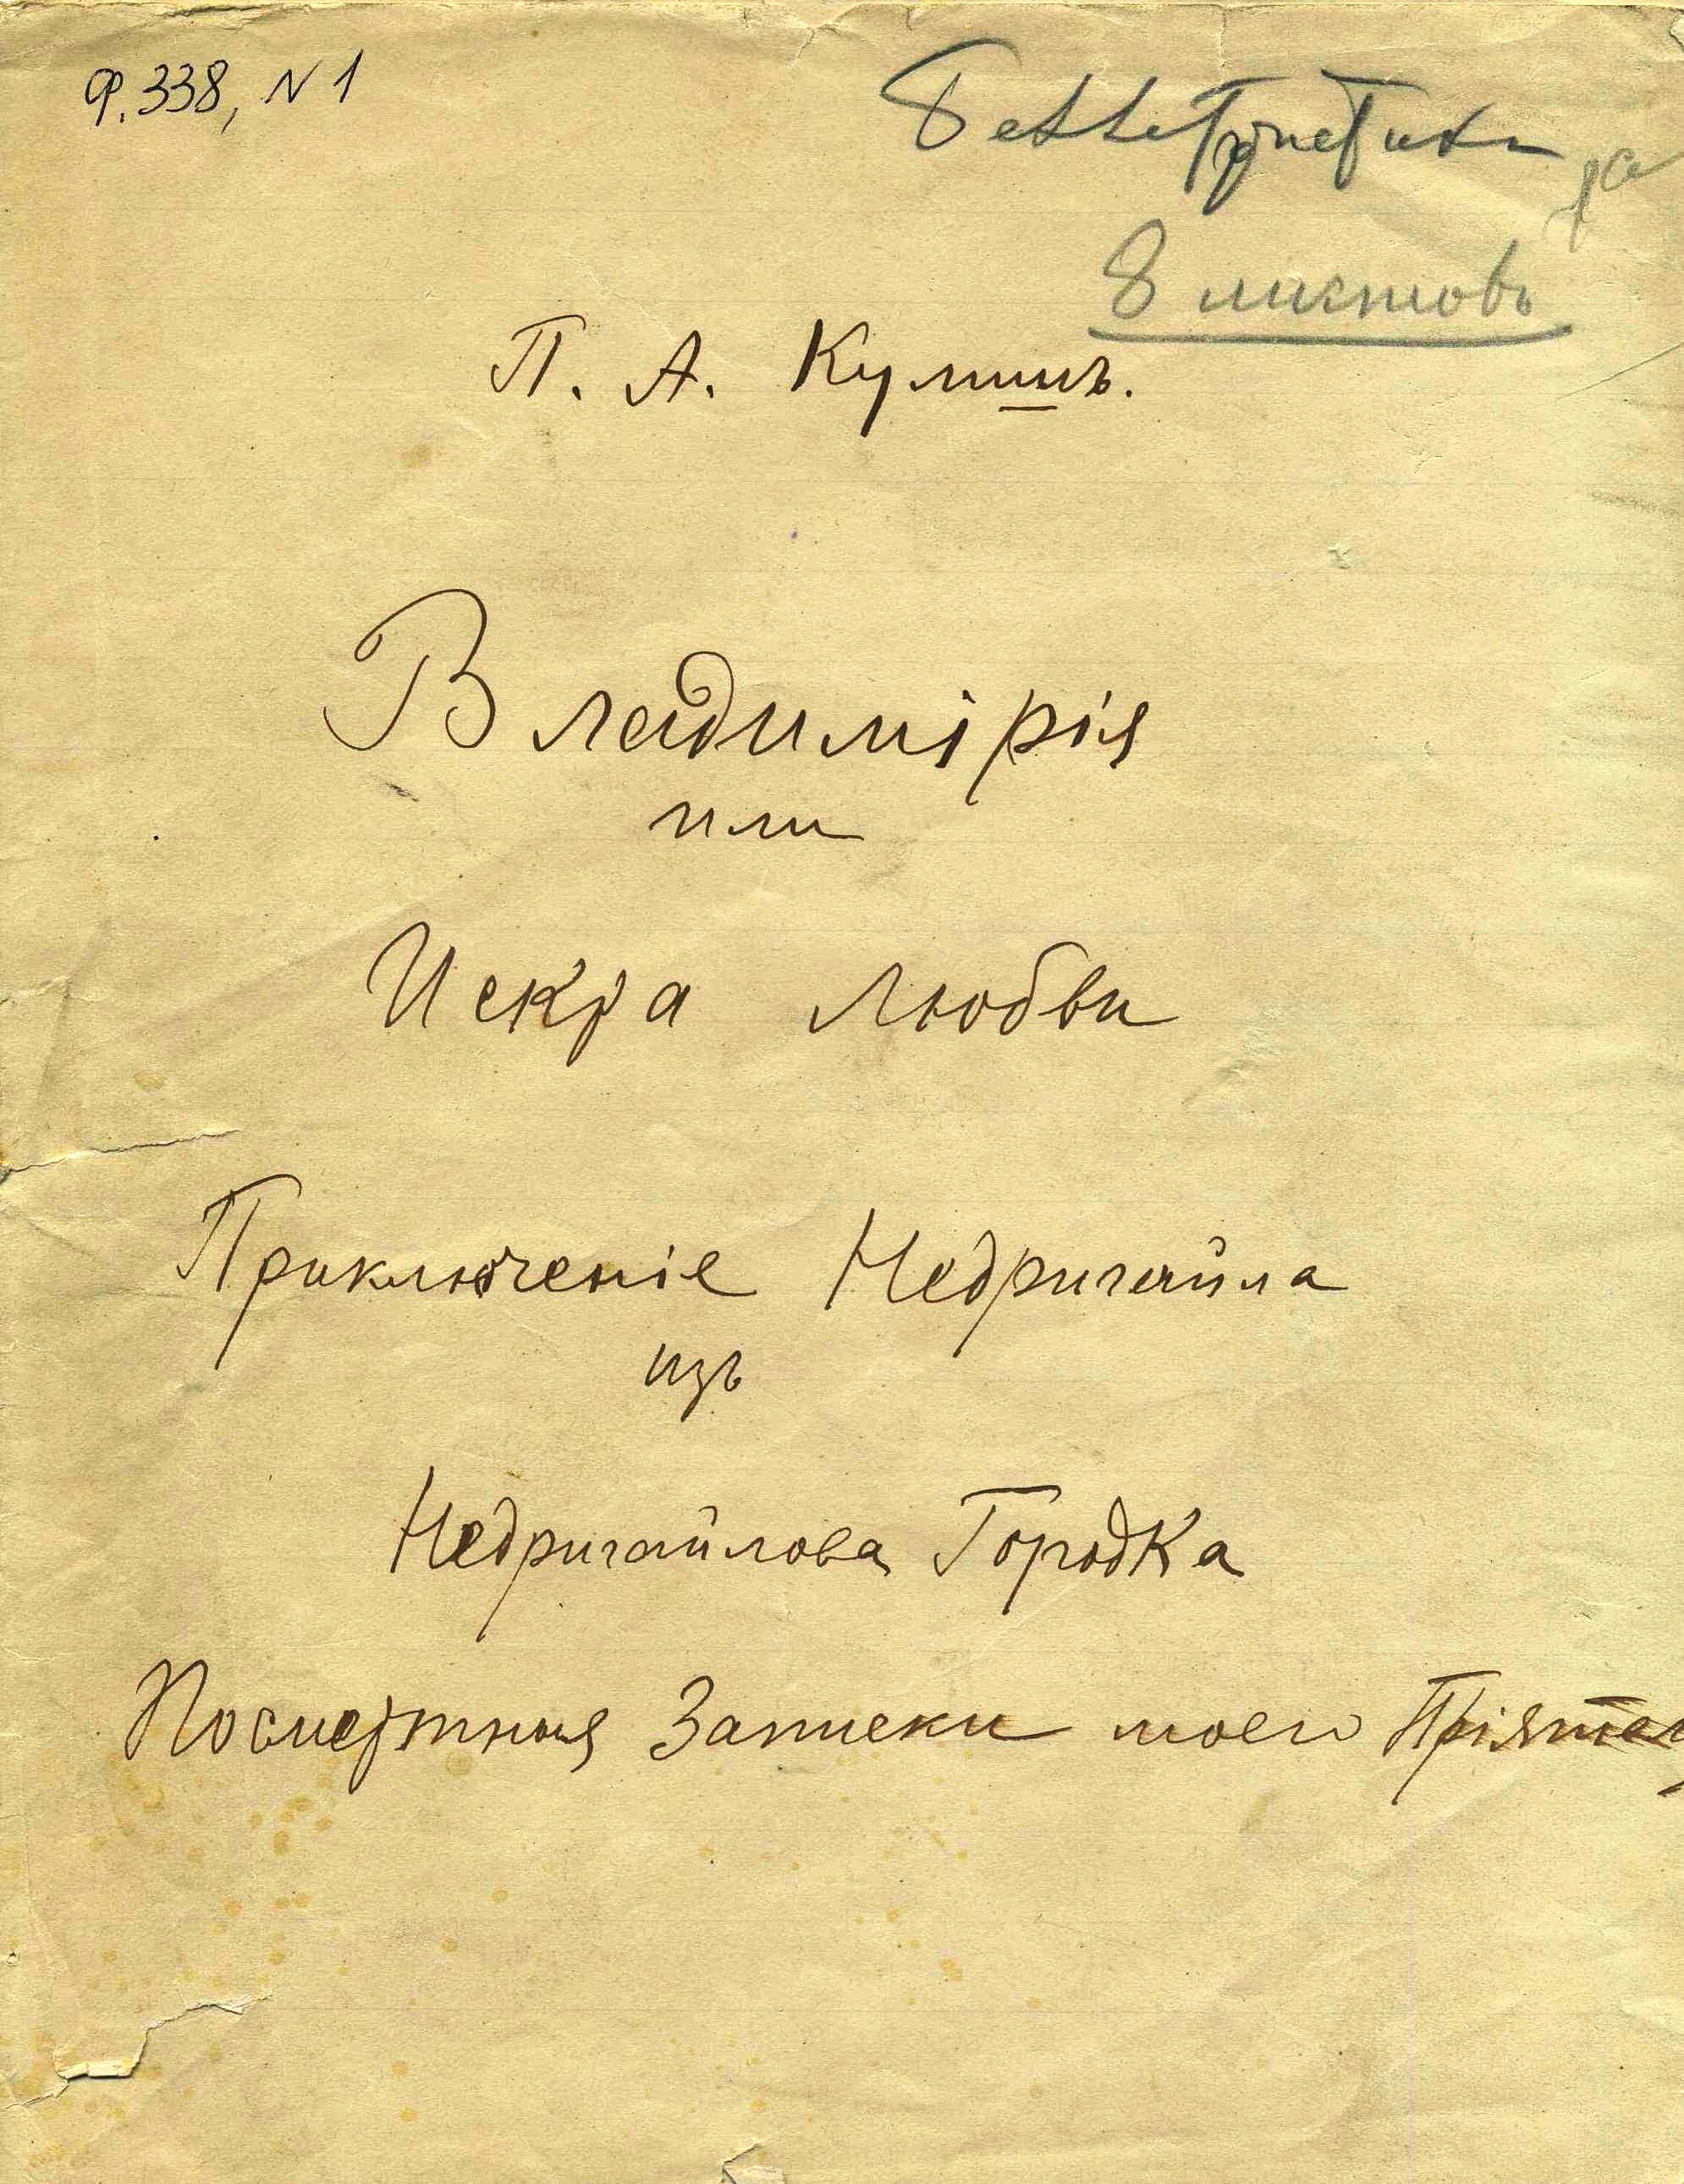 Ф. 338, N 1
Беллетристика
8 листовъ
П. А. Кулишъ.
Владимірія
или
Искра любви
Приключеніе Недригайла
изъ
Недригайлова Городка
Посмертныя Записки моего Пріятел